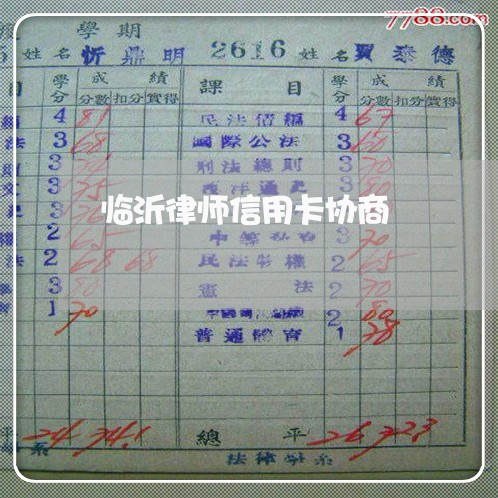 7788.com
學期
姓名 忻鼎明 2616 姓名 賈泰德
目 學分 成績 課目 學分 成績
分數 扣分 實得 分數 扣分 實得
4 81 民法債編 4 67
法 3 68 國際公法 3 60
3 刑法總則 3 70
3 75 西洋通史 3 80
臨沂律师信用卡协商
2 65 3 70
法 2 68 68 民法物權 2 65
3 80 憲法 2 70
1 70 2 80
普通體育 1 78
平 24 74.1 總平 26 72.3
系 法律學系